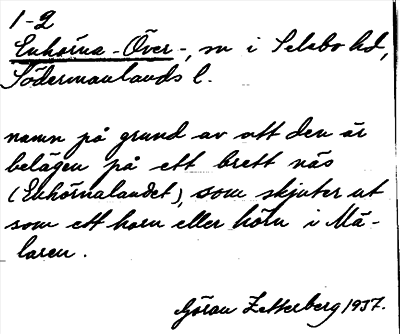 1-2
Enhörna -Över-, sn i Selebo hd,
Södermanlands l.
namn på grund av att den är
belägen på ett brett näs
(Enhörnalandet), som skjuter ut
som ett horn eller hörn i Mä-
laren.
Göran Zetterberg 1937.